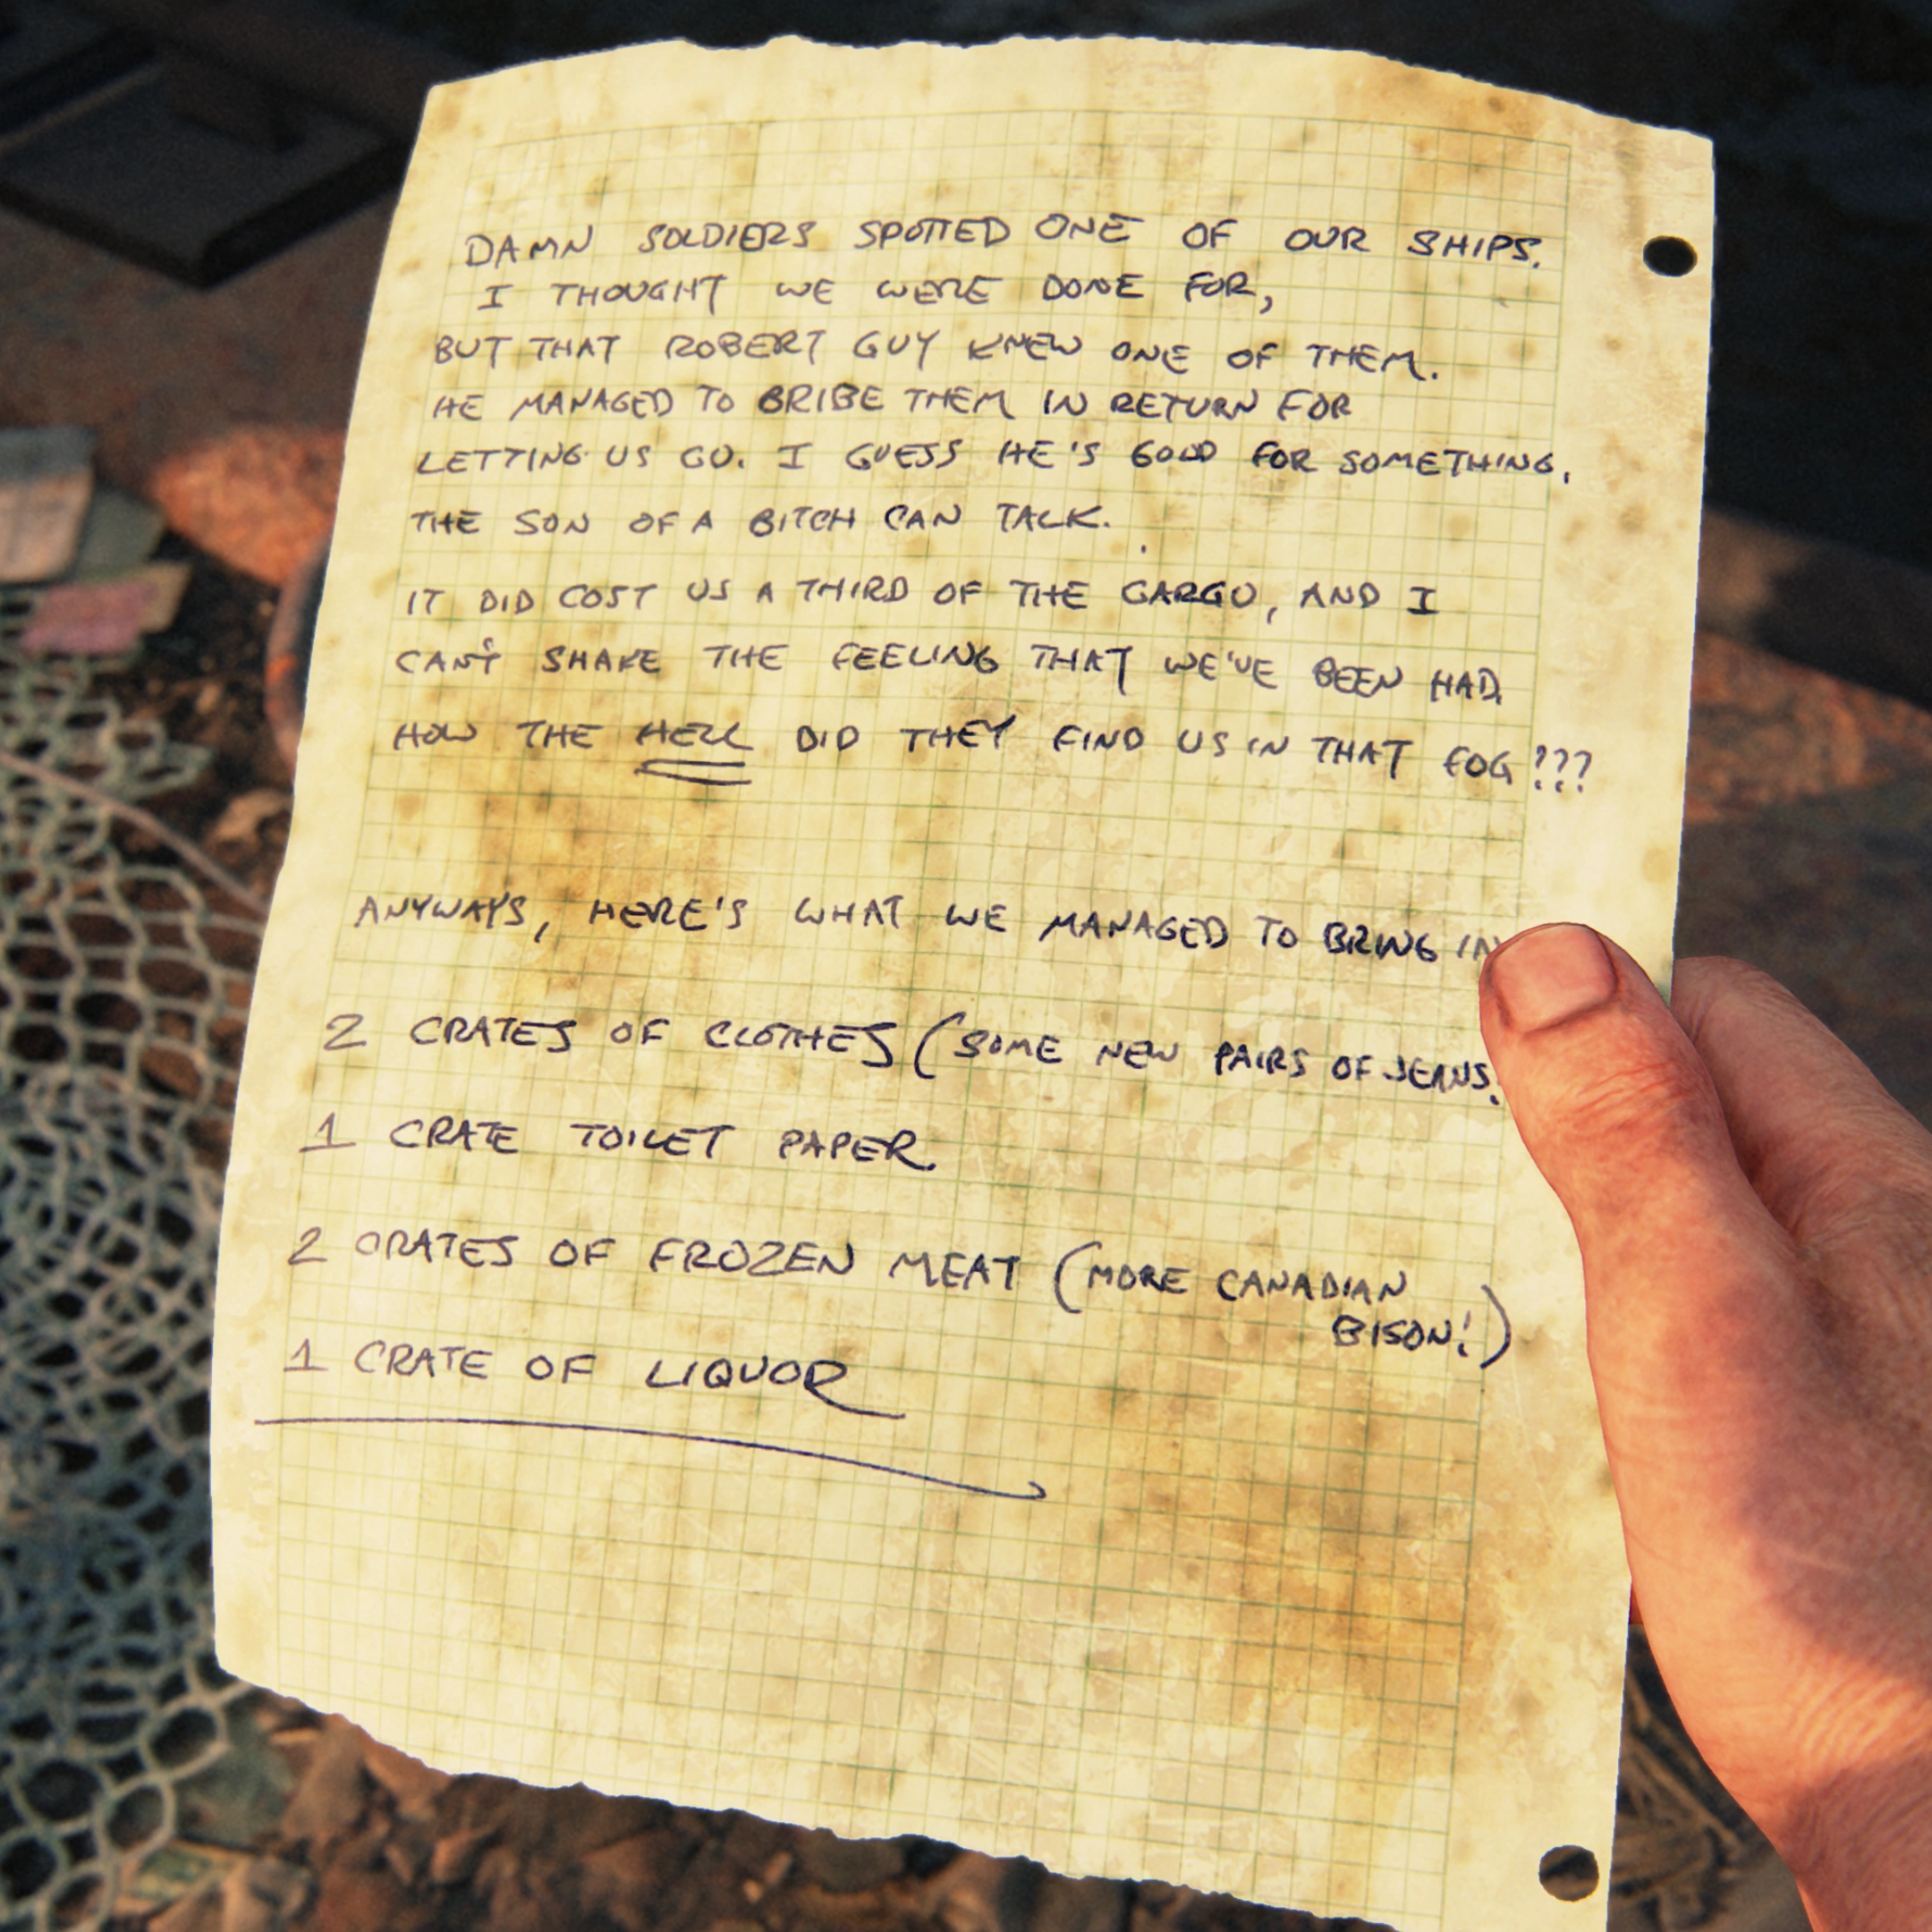 DAMN SOLDIERS SPOTTED ONE OF OUR SHIPS.
I THOUGHT WE WERE DONE FOR,
BUT THAT ROBERT GUY KNEW ONE OF THEM.
HE MANAGED TO BRIBE THEM IN RETURN FOR
LETTING US GO. I GUESS HE'S GOOD FOR SOMETHING.
THE SON OF A BITCH CAN TALK.
IT DID COST US A THIRD OF THE CARGO, AND I
CAN'T SHAKE THE FEELING THAT WE'VE BEEN HAD.
HOW THE HELL DID THEY FIND US IN THAT FOG???
ANYWAYS, HERE'S WHAT WE MANAGED TO BRING IN
2 CRATES OF CLOTHES (SOME NEW PAIRS OF JEANS.
1 CRATE TOILET PAPER.
2 CRATES OF FROZEN MEAT (MORE CANADIAN
BISON!)
1 CRATE OF LIQUOR